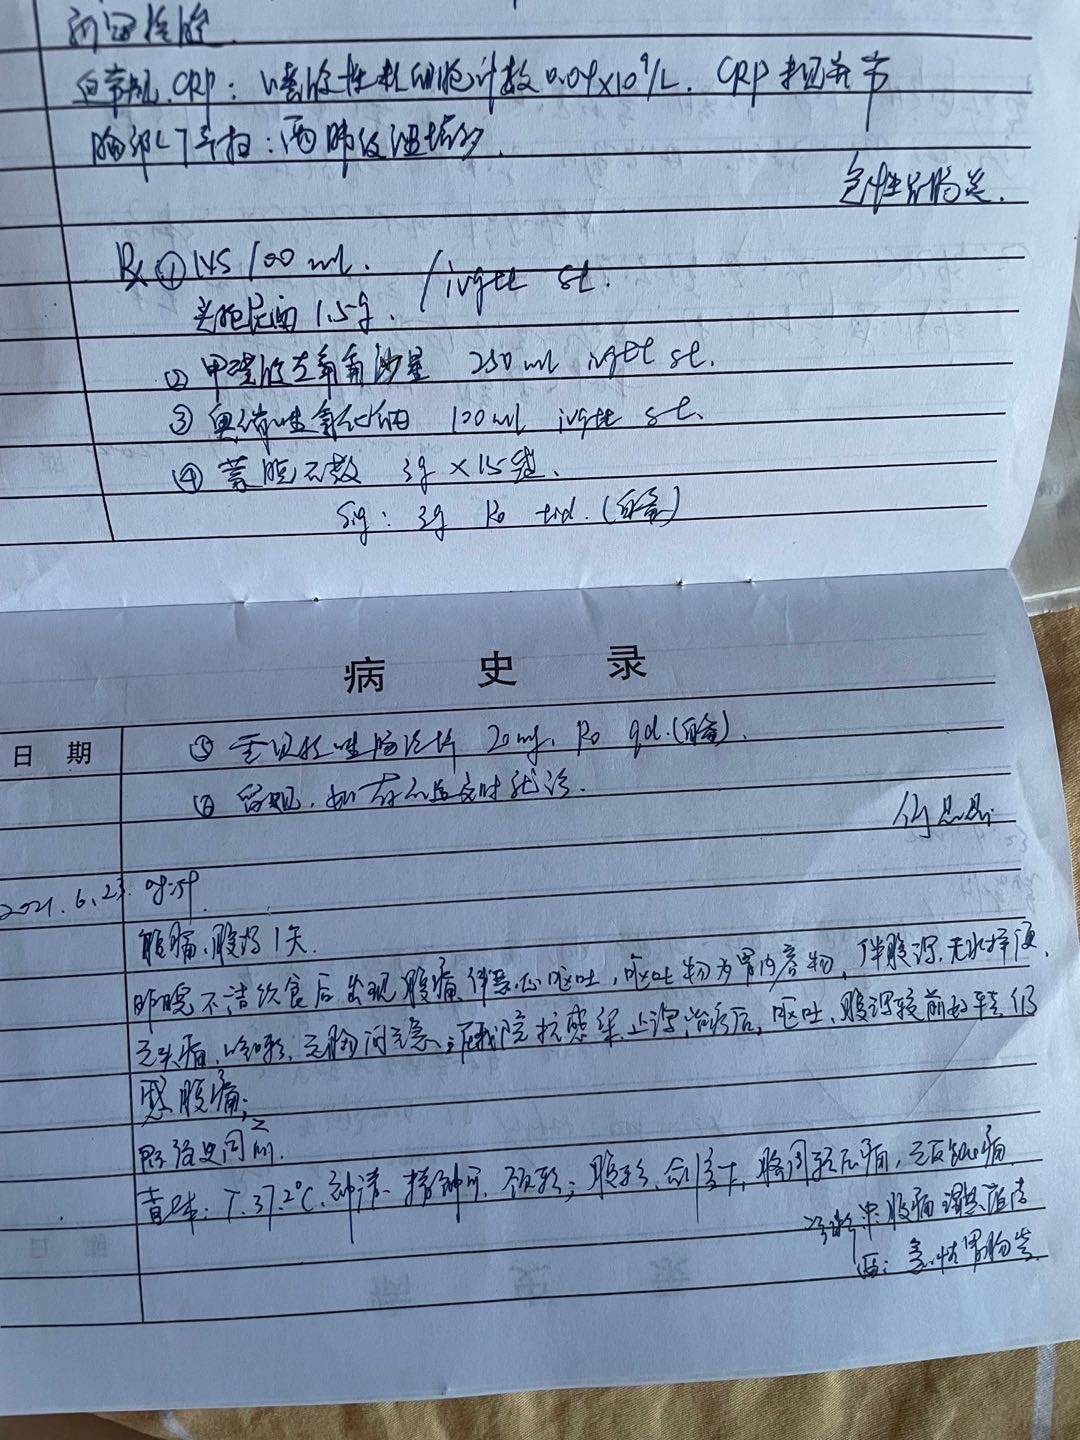 血常规.CRP: 嗜酸性粒细胞计数0.04×10⁹/L. CRP
胸部CT平扫: 两肺纹理增多.
急性胃肠炎.
Rx ① NS 100 ml. / ivgtt st.
1.5g.
② 甲磺酸左氧氟沙星 250 ml ivgtt st.
③ 奥硝唑氯化钠 100 ml ivgtt st.
④ 蒙脱石散 3g × 15袋.
Sig: 3g Po tid. (自备)
病 史 录
日 期
⑤ 雷贝拉唑肠溶片 20mg. Po qd. (自备).
⑥ 留观, 如有不适及时就诊.
2021. 6. 23.
腹痛、腹泻1天.
昨晚不洁饮食后出现腹痛、伴恶心呕吐, 呕吐物为胃内容物, 伴腹泻, 水样便.
无头痛、咳嗽、无胸闷气急; 在我院抗感染、止泻治疗后, 呕吐、腹泻较前好转, 仍
感腹痛;
既往史同前.
查体: T. 37.2℃. 神清、精神可. 颈软; 腹软、剑突下、脐周轻压痛, 无反跳痛.
诊断: 中: 腹痛 湿热
西: 急性胃肠炎